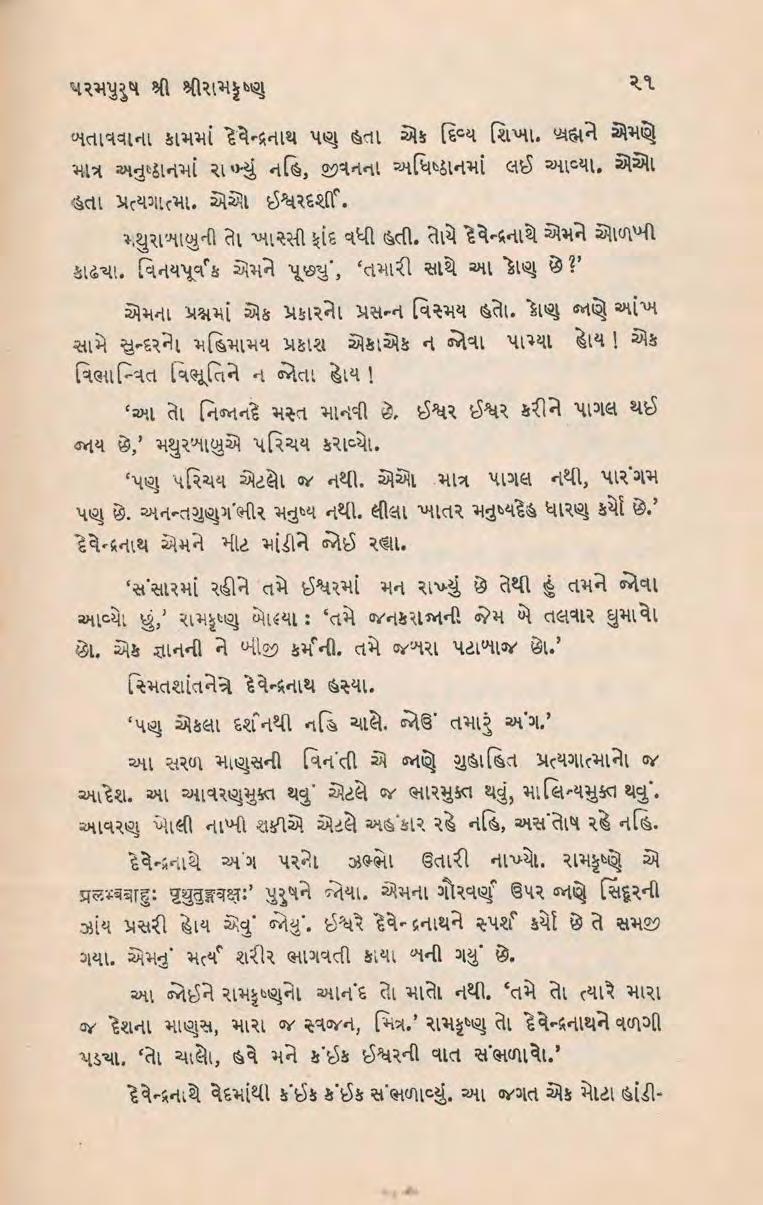 પરમપુરુષ શ્રી શ્રીરામકૃષ્ણ ૨૧
બતાવવાના કામમાં દેવેન્દ્રનાથ પણ હતા એક દિવ્ય શિખા. બ્રહ્મને એમણે
માત્ર અનુષ્ઠાનમાં રાખ્યું નહિ, જીવનના અધિષ્ઠાનમાં લઈ આવ્યા. એઓ
હતા પ્રત્યગાત્મા. એઓ ઈશ્વરદર્શી.
મથુરાબાબુની તો ખાસ્સી ફાંદ વધી હતી. તોયે દેવેન્દ્રનાથે એમને ઓળખી
કાઢયા. વિનયપૂર્વક એમને પૂછ્યું, ‘તમારી સાથે આ કોણ છે?’
એમના પ્રશ્નમાં એક પ્રકારનો પ્રસન્ન વિસ્મય હતો. કોણ જાણે આંખ
સામે સુન્દરનો મહિમામય પ્રકાશ એકાએક ન જોવા પામ્યા હોય ! એક
વિભાન્વિત વિભૂતિને ન જોતા હોય !
‘આ તો નિજાનંદે મસ્ત માનવી છે. ઈશ્વર ઈશ્વર કરીને પાગલ થઈ
જાય છે,’ મથુરબાબુએ પરિચય કરાવ્યો.
‘પણ પરિચય એટલો જ નથી. એઓ માત્ર પાગલ નથી, પારંગમ
પણ છે. અનન્તગુણગંભીર મનુષ્ય નથી. લીલા ખાતર મનુષ્યદેહ ધારણ કર્યો છે.’
દેવેન્દ્રનાથ એમને મીટ માંડીને જોઈ રહ્યા.
‘સંસારમાં રહીને તમે ઈશ્વરમાં મન રાખ્યું છે તેથી હું તમને જોવા
આવ્યો છું,’ રામકૃષ્ણ બોલ્યા : ‘તમે જનકરાજાની જેમ બે તલવાર ઘુમાવો
છો. એક જ્ઞાનની ને બીજી કર્મની. તમે જબરા પટાબાજ છો.’
સ્મિતશાંતનેત્રે દેવેન્દ્રનાથ હસ્યા.
‘પણ એકલા દર્શનથી નહિ ચાલે. જોઉં તમારું અંગ.’
આ સરળ માણસની વિનંતી એ જાણે ગુહાહિત પ્રત્યગાત્માનો જ
આદેશ. આ આવરણમુક્ત થવું એટલે જ ભારમુક્ત થવું, માલિન્યમુક્ત થવું.
આવરણ ખોલી નાખી શકીએ એટલે અહંકાર રહે નહિ, અસંતોષ રહે નહિ.
દેવેન્દ્રનાથે અંગ પરનો ઝભ્ભો ઉતારી નાખ્યો. રામકૃષ્ણે એ
प्रलम्बबाहुः पृथुतुङ्गवक्षः’ પુરુષને જોયા. એમના ગૌરવર્ણ ઉપર જાણે સિંદૂરની
ઝાંય પ્રસરી હોય એવું જોયું. ઈશ્વરે દેવેન્દ્રનાથને સ્પર્શ કર્યો છે તે સમજી
ગયા. એમનું મર્ત્ય શરીર ભાગવતી કાયા બની ગયું છે.
આ જોઈને રામકૃષ્ણનો આનંદ તો માતો નથી. ‘તમે તો ત્યારે મારા
જ દેશના માણસ, મારા જ સ્વજન, મિત્ર.’ રામકૃષ્ણ તો દેવેન્દ્રનાથને વળગી
પડયા. ‘તો ચાલો, હવે મને કંઈક ઈશ્વરની વાત સંભળાવો.’
દેવેન્દ્રનાથે વેદમાંથી કંઈક કંઈક સંભળાવ્યું. આ જગત એક મોટા હાંડી-